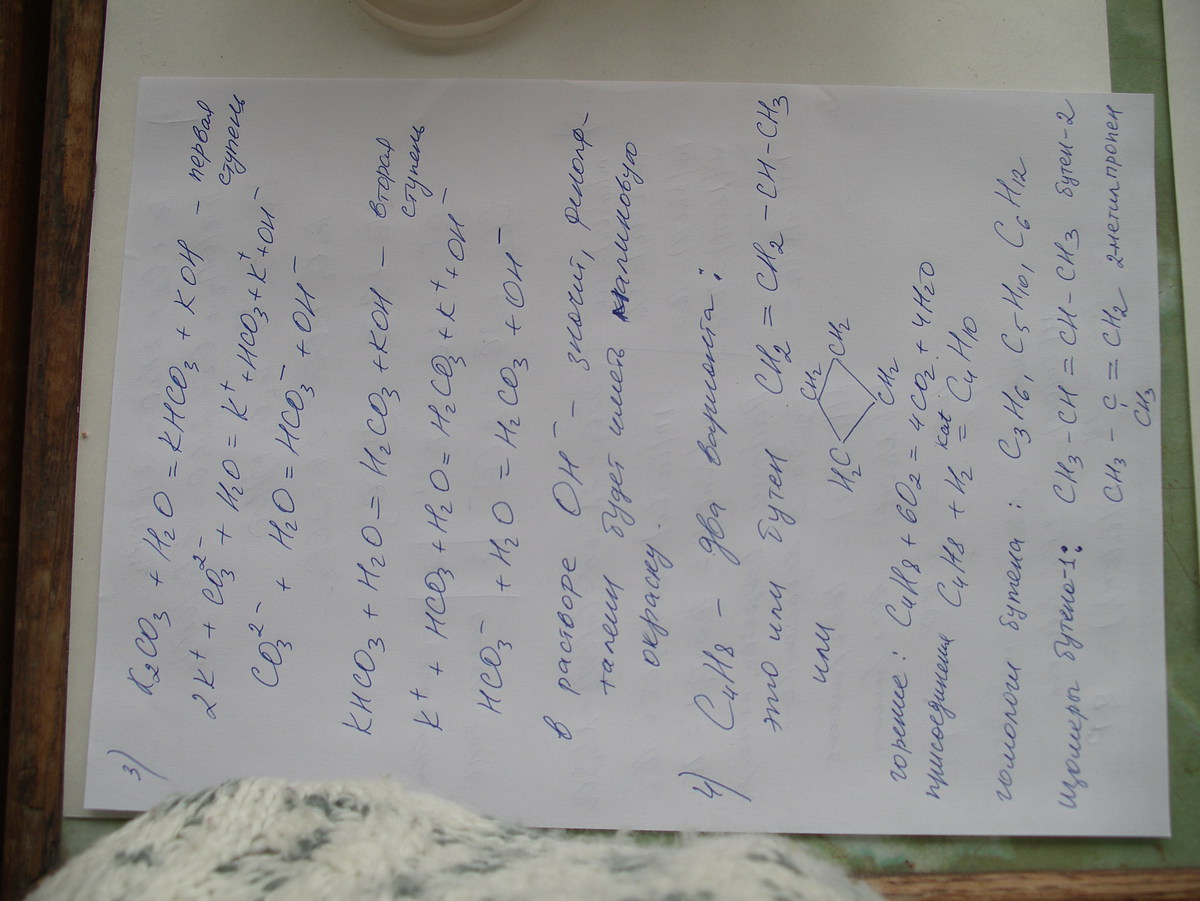 3) K₂CO₃ + H₂O = KHCO₃ + KOH – первая ступень
2K⁺ + CO₃²⁻ + H₂O = K⁺ + HCO₃ + K⁺ + OH⁻
CO₃²⁻ + H₂O = HCO₃⁻ + OH⁻
KHCO₃ + H₂O = H₂CO₃ + KOH – вторая ступень
K⁺ + HCO₃ + H₂O = H₂CO₃ + K⁺ + OH⁻
HCO₃⁻ + H₂O = H₂CO₃ + OH⁻
в растворе OH⁻ – значит, фенолф-
талеин будет иметь малиновую
окраску.
4) C₄H₈ – два варианта:
это или бутен CH₂ = CH₂ – CH – CH₃
или H₂C CH₂ CH₂ CH₂
горение: C₄H₈ + 6O₂ = 4CO₂ + 4H₂O
присоединения C₄H₈ + H₂ kat = C₄H₁₀
гомологи бутена: C₃H₆, C₅H₁₀, C₆H₁₂
изомеры бутена-1: CH₃ – CH = CH – CH₃ бутен-2
CH₃ – C = CH₂ 2-метилпропен
CH₃